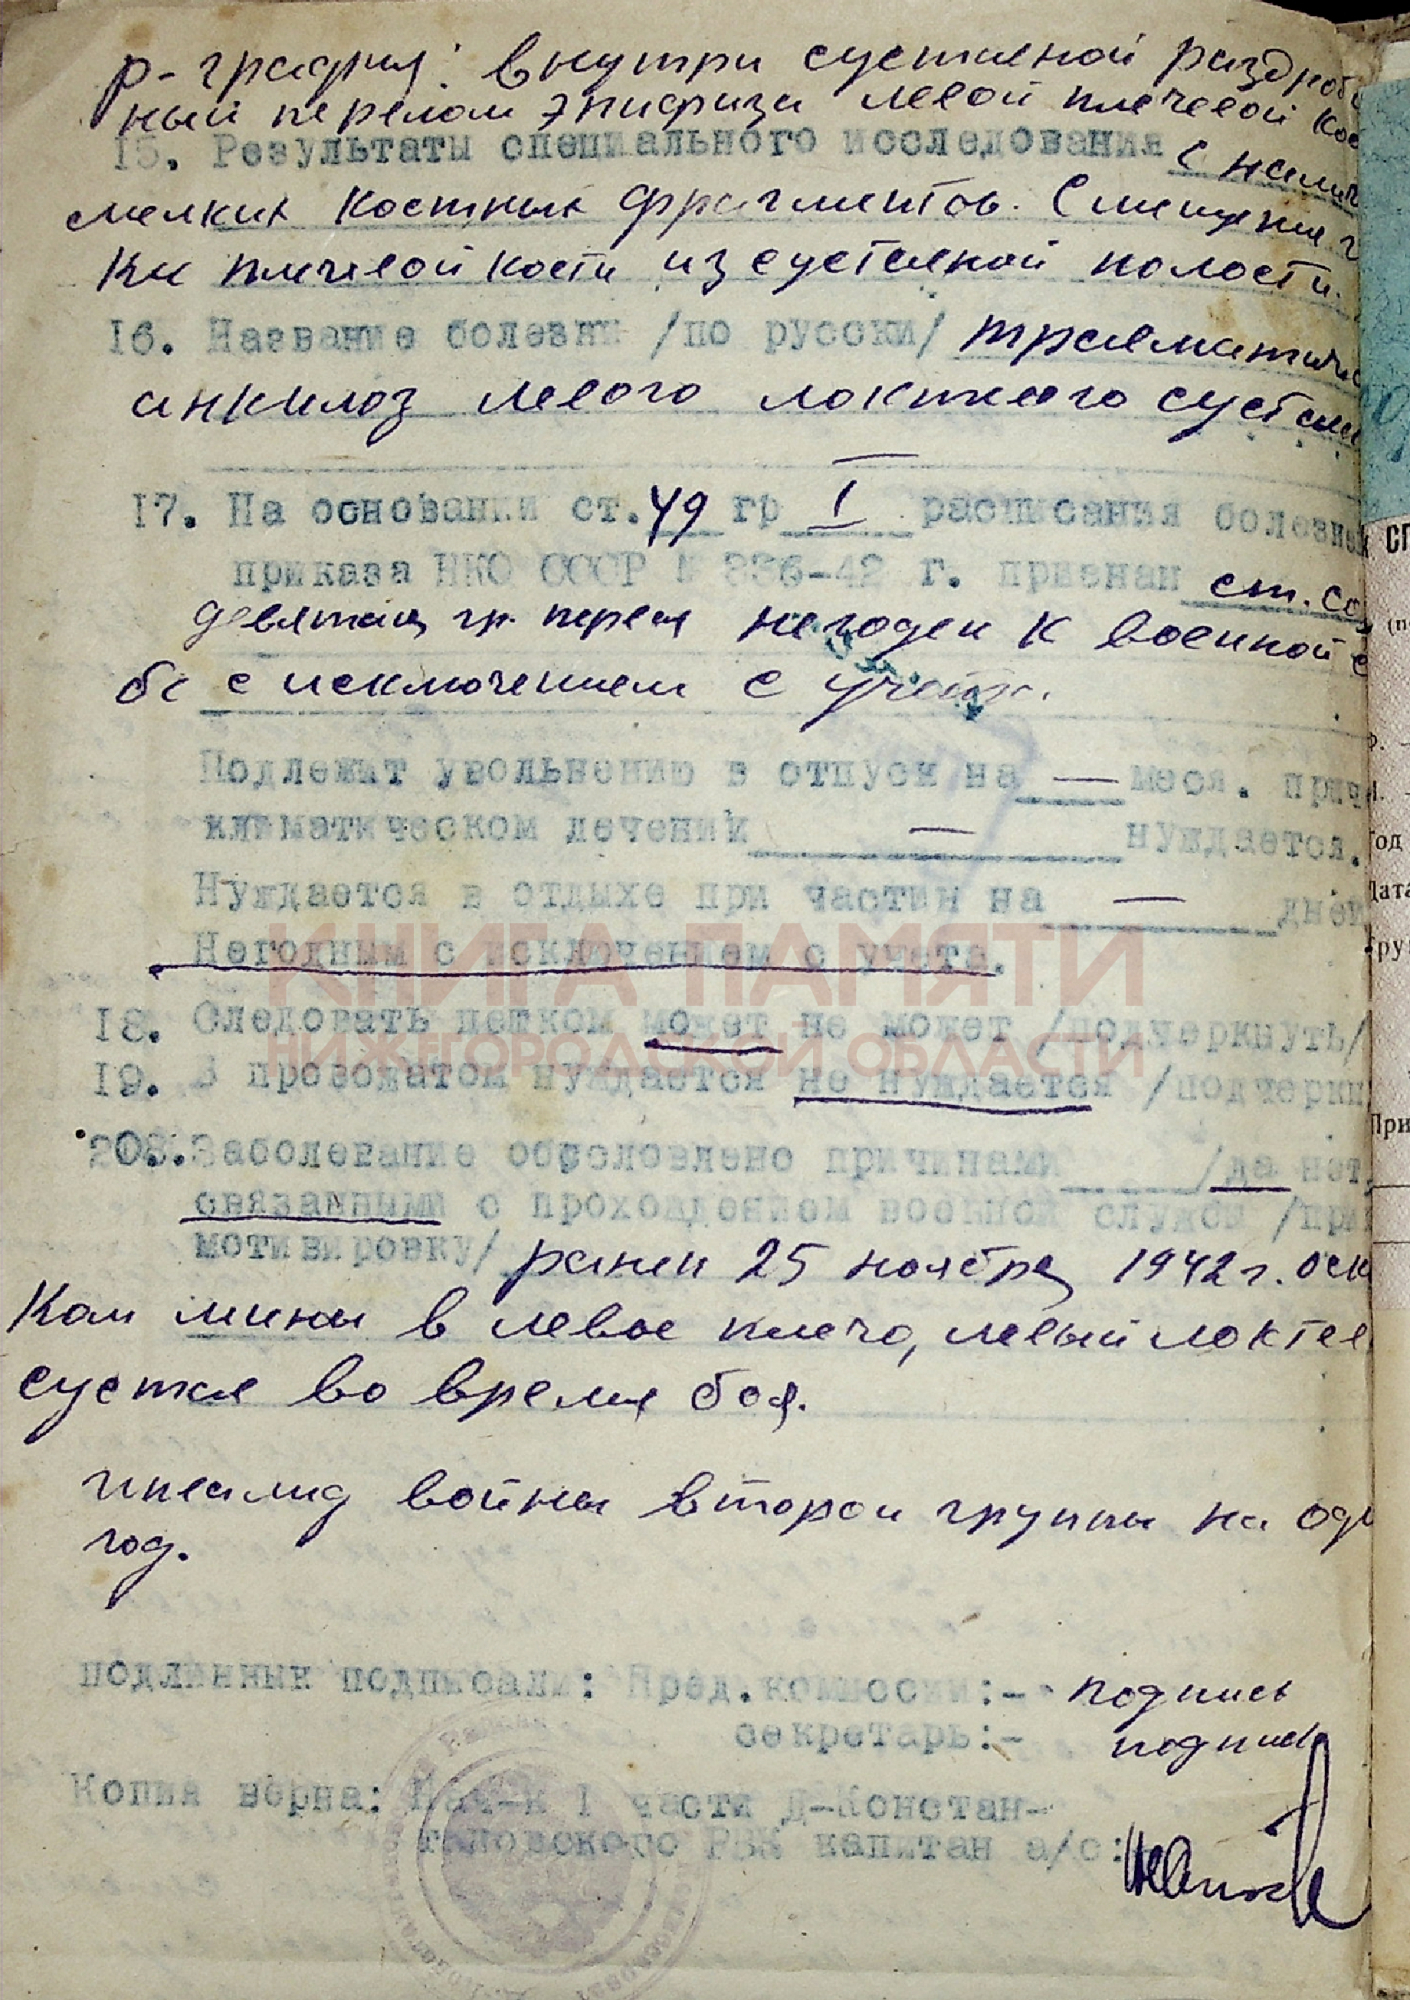 р-графия: внутри суставной раздроб
ный перелом эпифиза левой плечевой кос
15. Результаты специального исследования с налич
мелких костных фрагментов. Смещение г
ки плечевой кости из суставной полости.
16. Название болезни /по русски/ травматичес
анкилоз левого локтевого сустава
17. На основании ст. 49 гр I расписания болезней
приказа НКО СССР № 336-42 г. признан ст. со
девятая гр. первая негоден к военной с
бе с исключением с учета.
Подлежит увольнению в отпуск на — меся. прич
климатическом лечении — нуждается.
Нуждается в отдыхе при части на — дней
Негодным с исключением с учета.
КНИГА ПАМЯТИ
18. Следовать пешком может не может /подчеркнуть/
НИЖЕГОРОДСКОЙ ОБЛАСТИ
19. В провожатом нуждается не нуждается /подчеркн
20. Заболевание обусловлено причинами /да нет,
связанными с прохождением военной службы /при
мотивировку/ ранен 25 ноября 1942 г. оск
ком мины в левое плечо, левый локтев
сустав во время боя.
инвалид войны второй группы на оди
год.
подлинник подписали: Пред. комиссии:- подпись
секретарь:- подпись
Копия верна: Нач-к 1 части Д-Констан-
тиновского РВК капитан а/с: